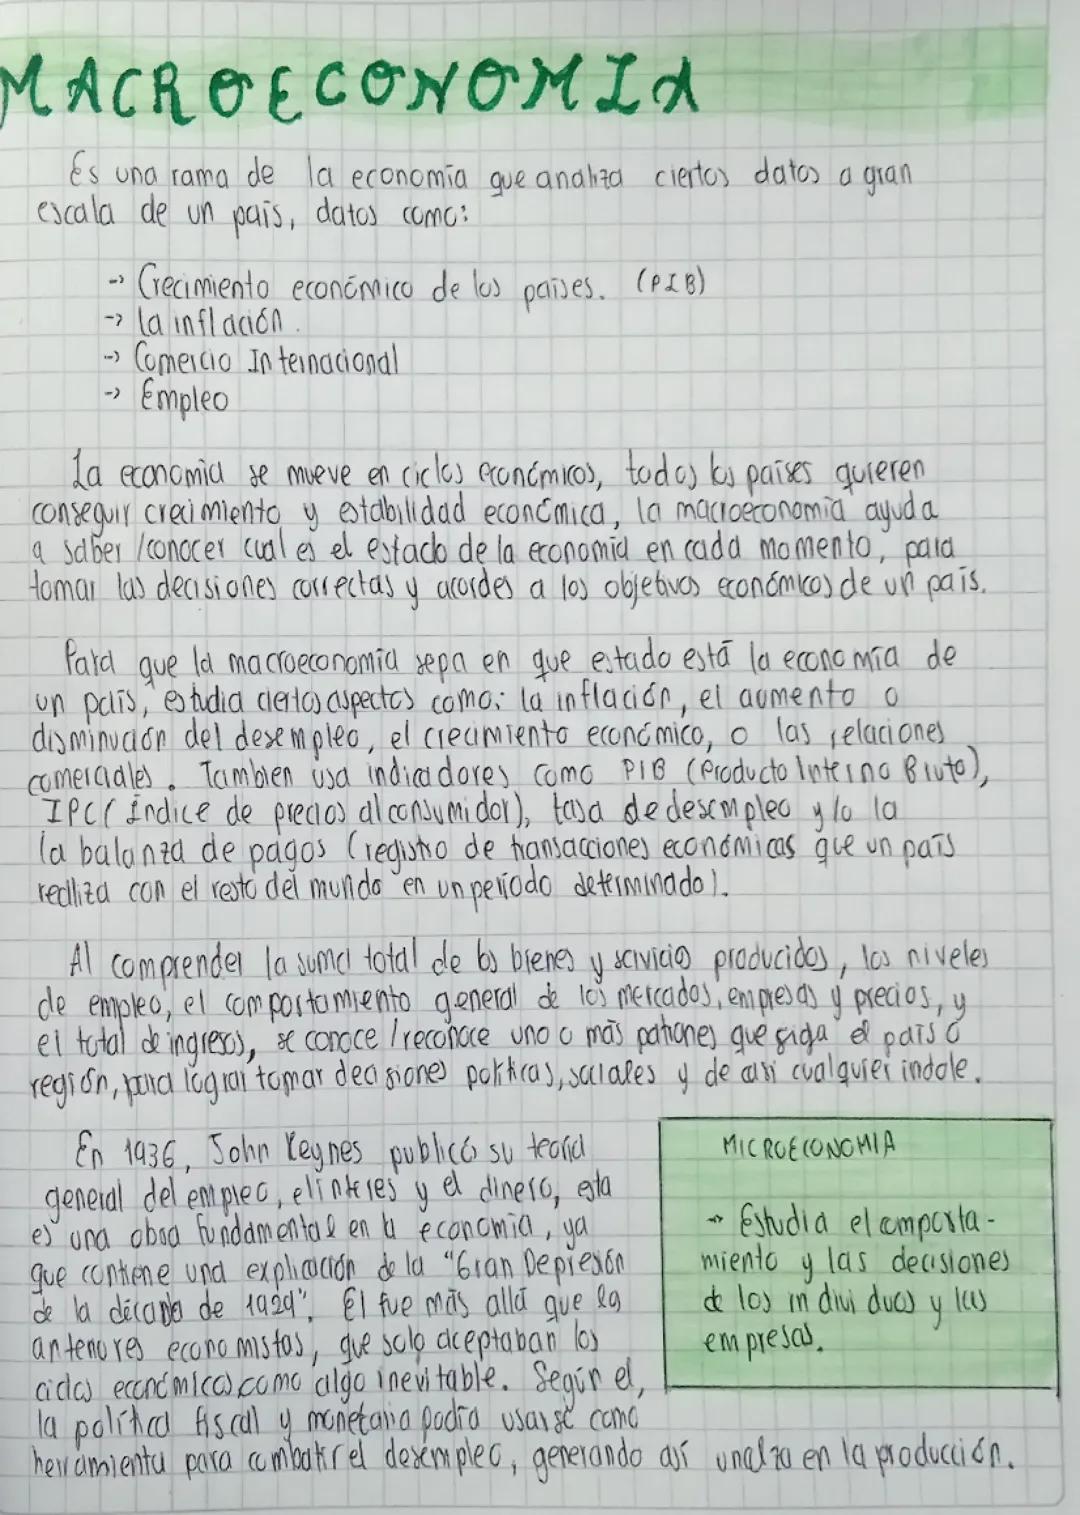 MACROECONOMIA
Es una rama de la economía que analiza ciertos datos a gran
escala de un país, datos como:
-> Crecimiento económico de los países. (PIB)
-> la inflación.
-> Comercio Internacional
-> Empleo
La economia se mueve en ciclos económicos, todos los países quieren
conseguir crecimiento y estabilidad económica, la macroeconomia ayuda
a saber / conocer cual es el estado de la economia en cada momento, para
tomar las decisiones correctas y acordes a los objetivos económicos de un país.
Para que la macroeconomía sepa en que estado está la economía de
un país, estudia ciertos aspectos como: la inflación, el aumento o
disminución del desempleo, el crecimiento económico, o las relaciones
comerciales. Tambien usa indicadores como PIB (Producto Interno Bruto),
IPC (Índice de precios al consumidor), tasa de desempleo y/o la
la balanza de pagos (registro de transacciones económicas que un país
realiza con el resto del mundo en un período determinado).
Al comprender la suma total de los bienes y servicios producidos, los niveles
de empleo, el comportamiento general de los mercados, empresas y precios, y
el total de ingresos, se conoce / reconoce uno o más patrones que siga el país o
región, para lograr tomar decisiones políticas, sociales y de casi cualquier indole.
En 1936, John Keynes publicó su teoria
general del empleo, el interes y el dinero, esta
es una obra fundamental en la economía, ya
que contiene una explicación de la "Gran Depresión
de la década de 1929". El fue más allá que los
anteriores economistas, que solo aceptaban los
ciclos económicos como algo inevitable. Según el,
la política fiscal y monetaria podía usarse como
herramienta para combatir el desempleo, generando así un alza en la producción.
MICROECONOMIA
-> Estudia el comporta-
miento y las decisiones
de los individuos y las
empresas.